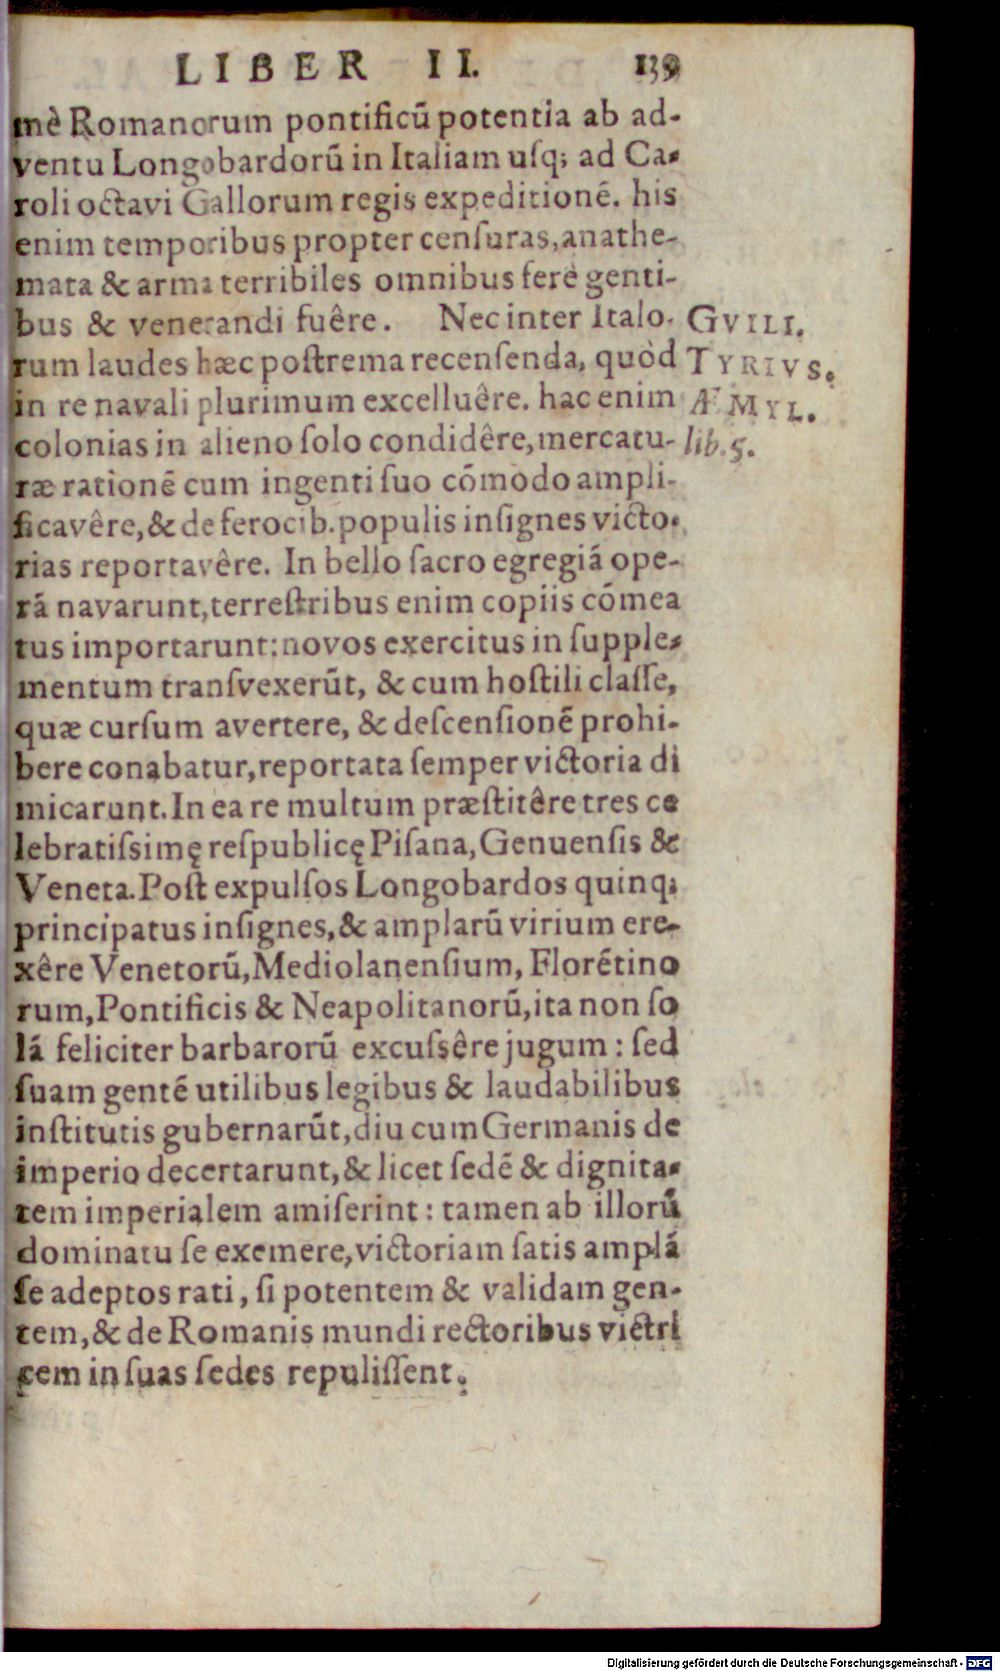 LIBER II. 139
mè Romanorum pontificũ potentia ab ad-
ventu Longobardorũ in Italiam uſq; ad Ca-
roli octavi Gallorum regis expeditionẽ. his
enim temporibus propter cenſuras, anathe-
mata & arma terribiles omnibus ferè genti-
bus & venerandi fuêre. Nec inter Italo-
GVILI.
rum laudes hæc poſtrema recenſenda, quòd
TYRIVS.
in re navali plurimum excelluêre. hac enim
ÆMYL.
colonias in alieno ſolo condidêre, mercatu-
lib. 5.
ræ rationẽ cum ingenti ſuo cõmodo ampli-
ficavêre, & de ferocib. populis inſignes victo-
rias reportavêre. In bello ſacro egregiã ope-
rã navarunt, terreſtribus enim copiis cõmea
tus importarunt: novos exercitus in ſupple-
mentum tranſvexerũt, & cum hoſtili claſſe,
quæ curſum avertere, & deſcenſionẽ prohi-
bere conabatur, reportata ſemper victoria di
micarunt. In ea re multum præſtitêre tres ce
lebratiſsimę reſpublicę Piſana, Genuenſis &
Veneta. Poſt expulſos Longobardos quinq;
principatus inſignes, & amplarũ virium ere-
xêre Venetorũ, Mediolanenſium, Florẽtino
rum, Pontificis & Neapolitanorũ, ita non ſo
lã feliciter barbarorũ excuſsêre jugum: ſed
ſuam gentẽ utilibus legibus & laudabilibus
inſtitutis gubernarũt, diu cum Germanis de
imperio decertarunt, & licet ſedẽ & dignita-
tem imperialem amiſerint: tamen ab illorũ
dominatu ſe exemere, victoriam ſatis amplã
ſe adeptos rati, ſi potentem & validam gen-
tem, & de Romanis mundi rectoribus victri
cem in ſuas ſedes repuliſſent.
Digitalisierung gefördert durch die Deutsche Forschungsgemeinschaft - DFG